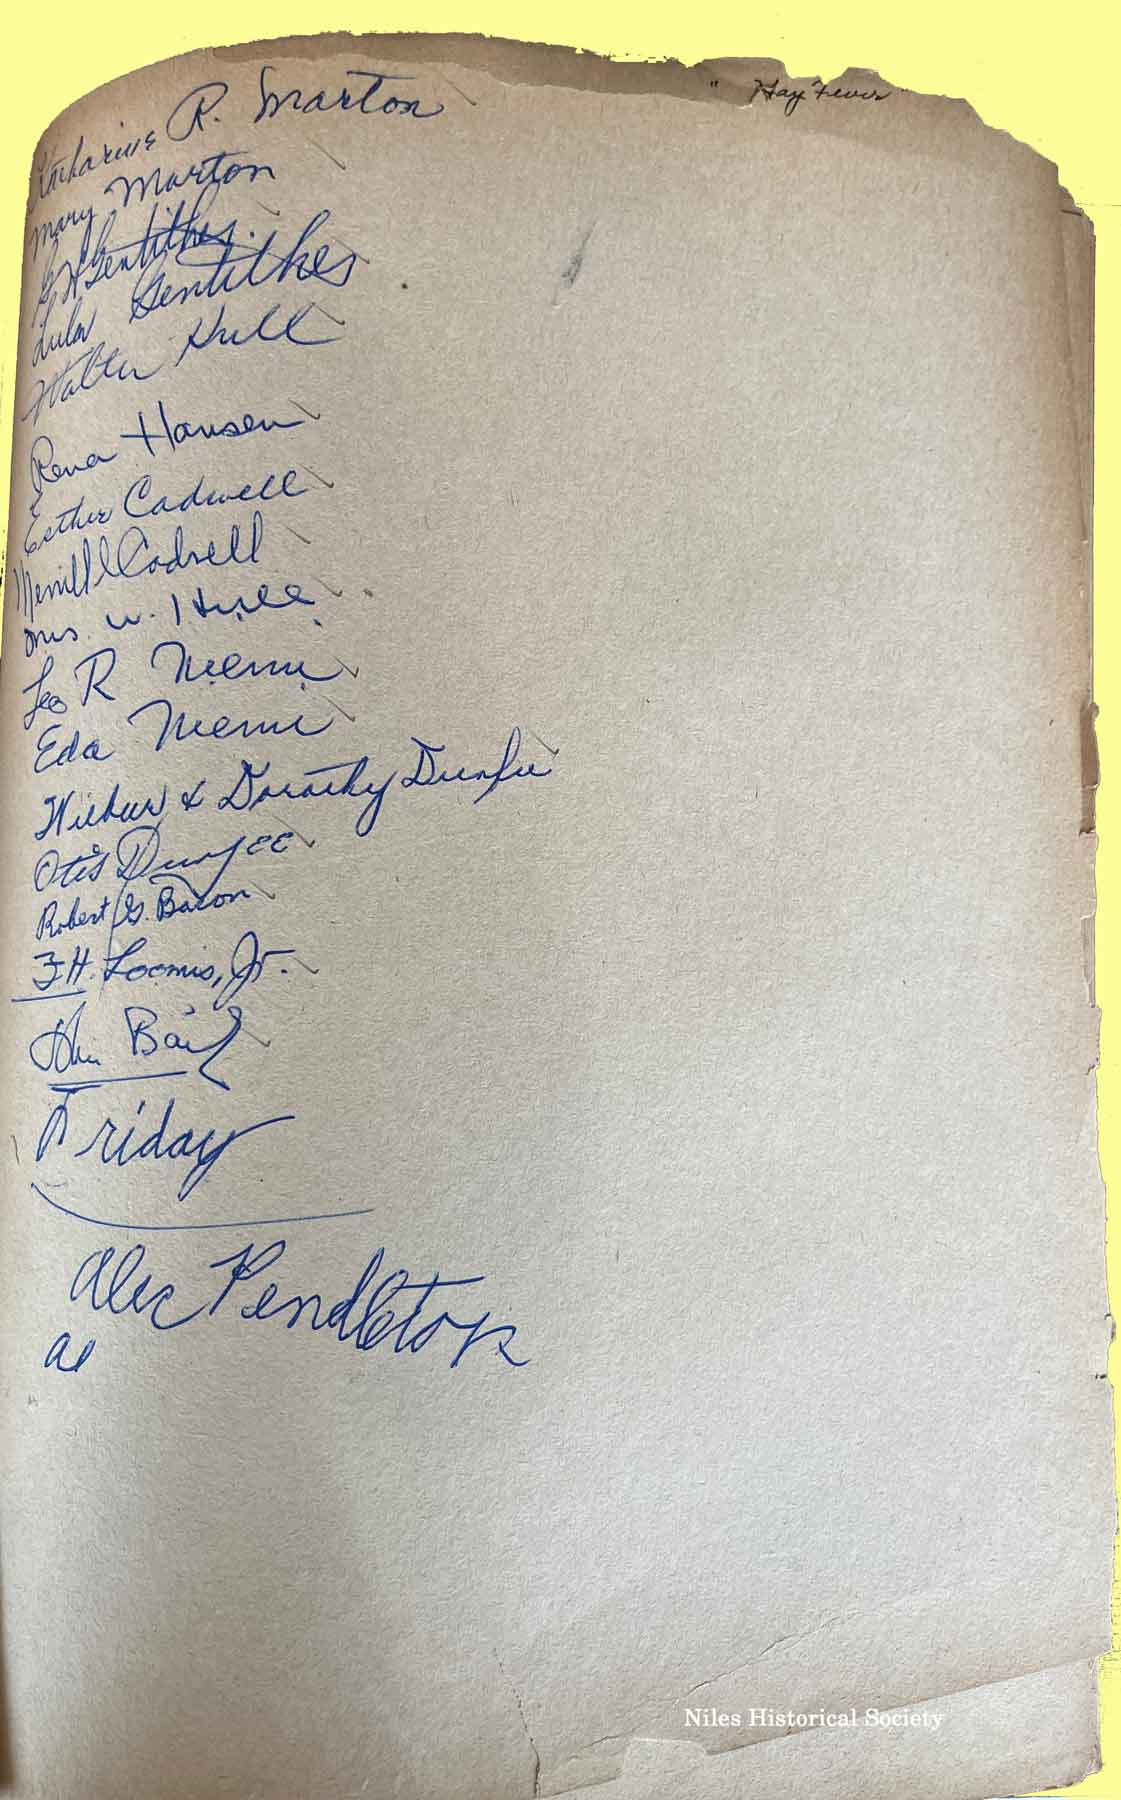 "Hay Fever"
Katharine R. Marton
Mary Marton
G H Gentithes.
Lula Gentithes
Walter Hull
Rena Hansen
Esther Cadwell
Merrill Cadwell
Mrs. W. Hull
Leo R Niemi
Eda Niemi
Wilbur & Dorothy Dunfee
Otis Dunfee
Robert G. Bacon
F.H. Loomis, Jr.
Friday
Alec Pendleton
al
Niles Historical Society